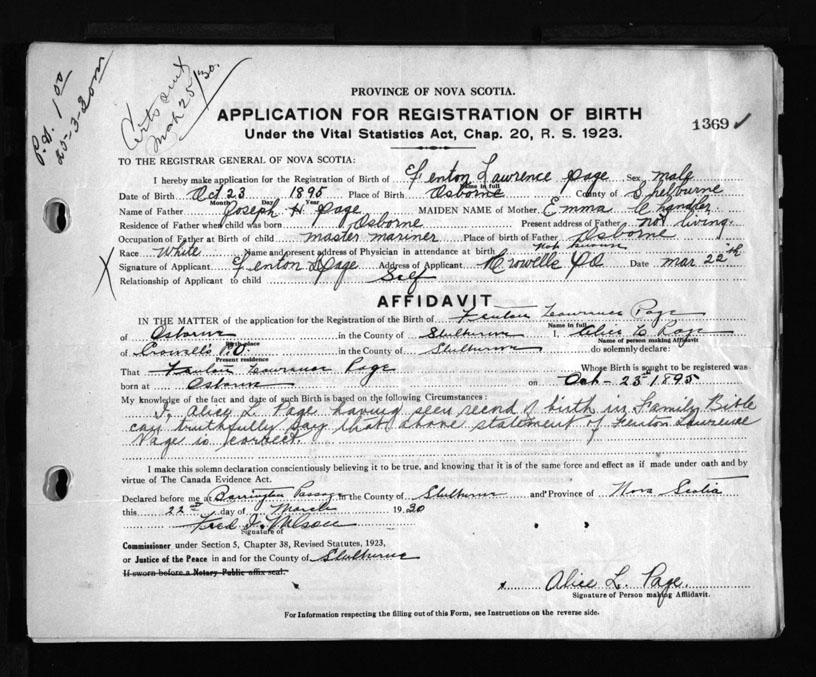 Pd. 1.00
20-3-30
Mch 25/30.
PROVINCE OF NOVA SCOTIA.
APPLICATION FOR REGISTRATION OF BIRTH
Under the Vital Statistics Act, Chap. 20, R. S. 1923.
1369 ✓
TO THE REGISTRAR GENERAL OF NOVA SCOTIA:
I hereby make application for the Registration of Birth of Fenton Lawrence Page Sex male
Name in full
Date of Birth Oct 23 1895 Place of Birth Osborne County of Shelburne
Month Day Year
Name of Father Joseph H Page MAIDEN NAME of Mother Emma Chandler
Residence of Father when child was born Osborne Present address of Father not living
Occupation of Father at Birth of child master mariner Place of birth of Father Osborne
Race White Name and present address of Physician in attendance at birth not known
Signature of Applicant Fenton L Page Address of Applicant Crowells PO Date Mar 22th
Relationship of Applicant to child Self
AFFIDAVIT
IN THE MATTER of the application for the Registration of the Birth of Fenton Lawrence Page
Name in full
of Osborne in the County of Shelburne I, Alice L Page
Birth place Name of person making Affidavit
of Crowell's P.O. in the County of Shelburne do solemnly declare:
Present residence
That Fenton Lawrence Page Whose Birth is sought to be registered was
born at Osborne on Oct - 23rd 1895
My knowledge of the fact and date of such Birth is based on the following Circumstances:
I, Alice L. Page having seen record of birth in Family Bible
can truthfully say that above statement of Fenton Lawrence
Page is correct
I make this solemn declaration conscientiously believing it to be true, and knowing that it is of the same force and effect as if made under oath and by
virtue of The Canada Evidence Act.
Declared before me at Barrington Passage in the County of Shelburne and Province of Nova Scotia
this 22nd day of March 1930
Fred J. Wilson
Signature of
Commissioner under Section 5, Chapter 38, Revised Statutes, 1923,
or Justice of the Peace in and for the County of Shelburne
If sworn before a Notary Public affix seal.
x Alice L. Page.
Signature of Person making Affidavit.
For Information respecting the filling out of this Form, see Instructions on the reverse side.